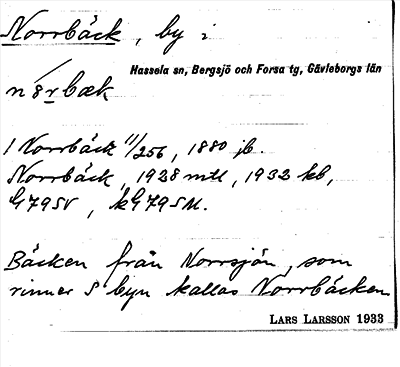 Norrbäck, by i
Hassela sn, Bergsjö och Forsa tg, Gävleborgs län
n8rbæk
1 Norrbäck 11/256, 1880 jb.
Norrbäck, 1928 mtl, 1932 kb,
G79SV, kG79SM.
Bäcken från Norrsjön, som
rinner S byn kallas Norrbäcken
LARS LARSSON 1933